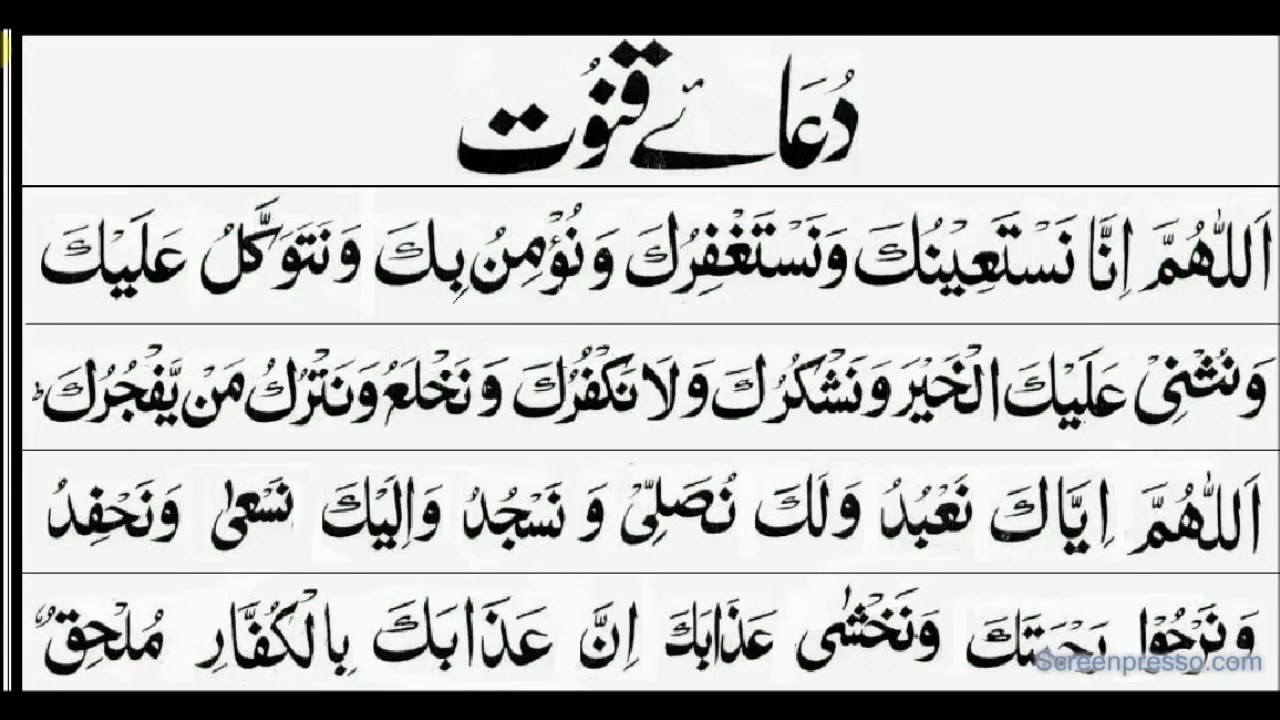 دُعَائے قنُوت
اَللّٰهُمَّ اِنَّا نَسْتَعِيْنُكَ وَنَسْتَغْفِرُكَ وَنُؤْمِنُ بِكَ وَنَتَوَكَّلُ عَلَيْكَ
وَنُثْنِيْ عَلَيْكَ الْخَيْرَ وَنَشْكُرُكَ وَلَا نَكْفُرُكَ وَنَخْلَعُ وَنَتْرُكُ مَنْ يَّفْجُرُكَ ؕ
اَللّٰهُمَّ اِيَّاكَ نَعْبُدُ وَلَكَ نُصَلِّيْ وَنَسْجُدُ وَاِلَيْكَ نَسْعٰى وَنَحْفِدُ
وَنَرْجُوْا رَحْمَتَكَ وَنَخْشٰى عَذَابَكَ اِنَّ عَذَابَكَ بِالْكُفَّارِ مُلْحِقٌ
Screenpresso.com